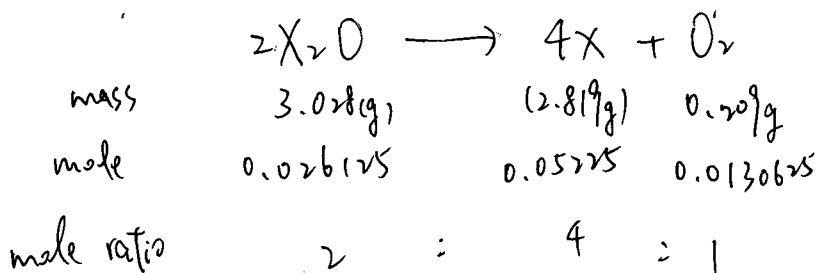 2X₂O ⟶ 4X + O₂
mass 3.028(g) (2.819g) 0.209g
mole 0.026125 0.05225 0.0130625
mole ratio 2 : 4 : 1